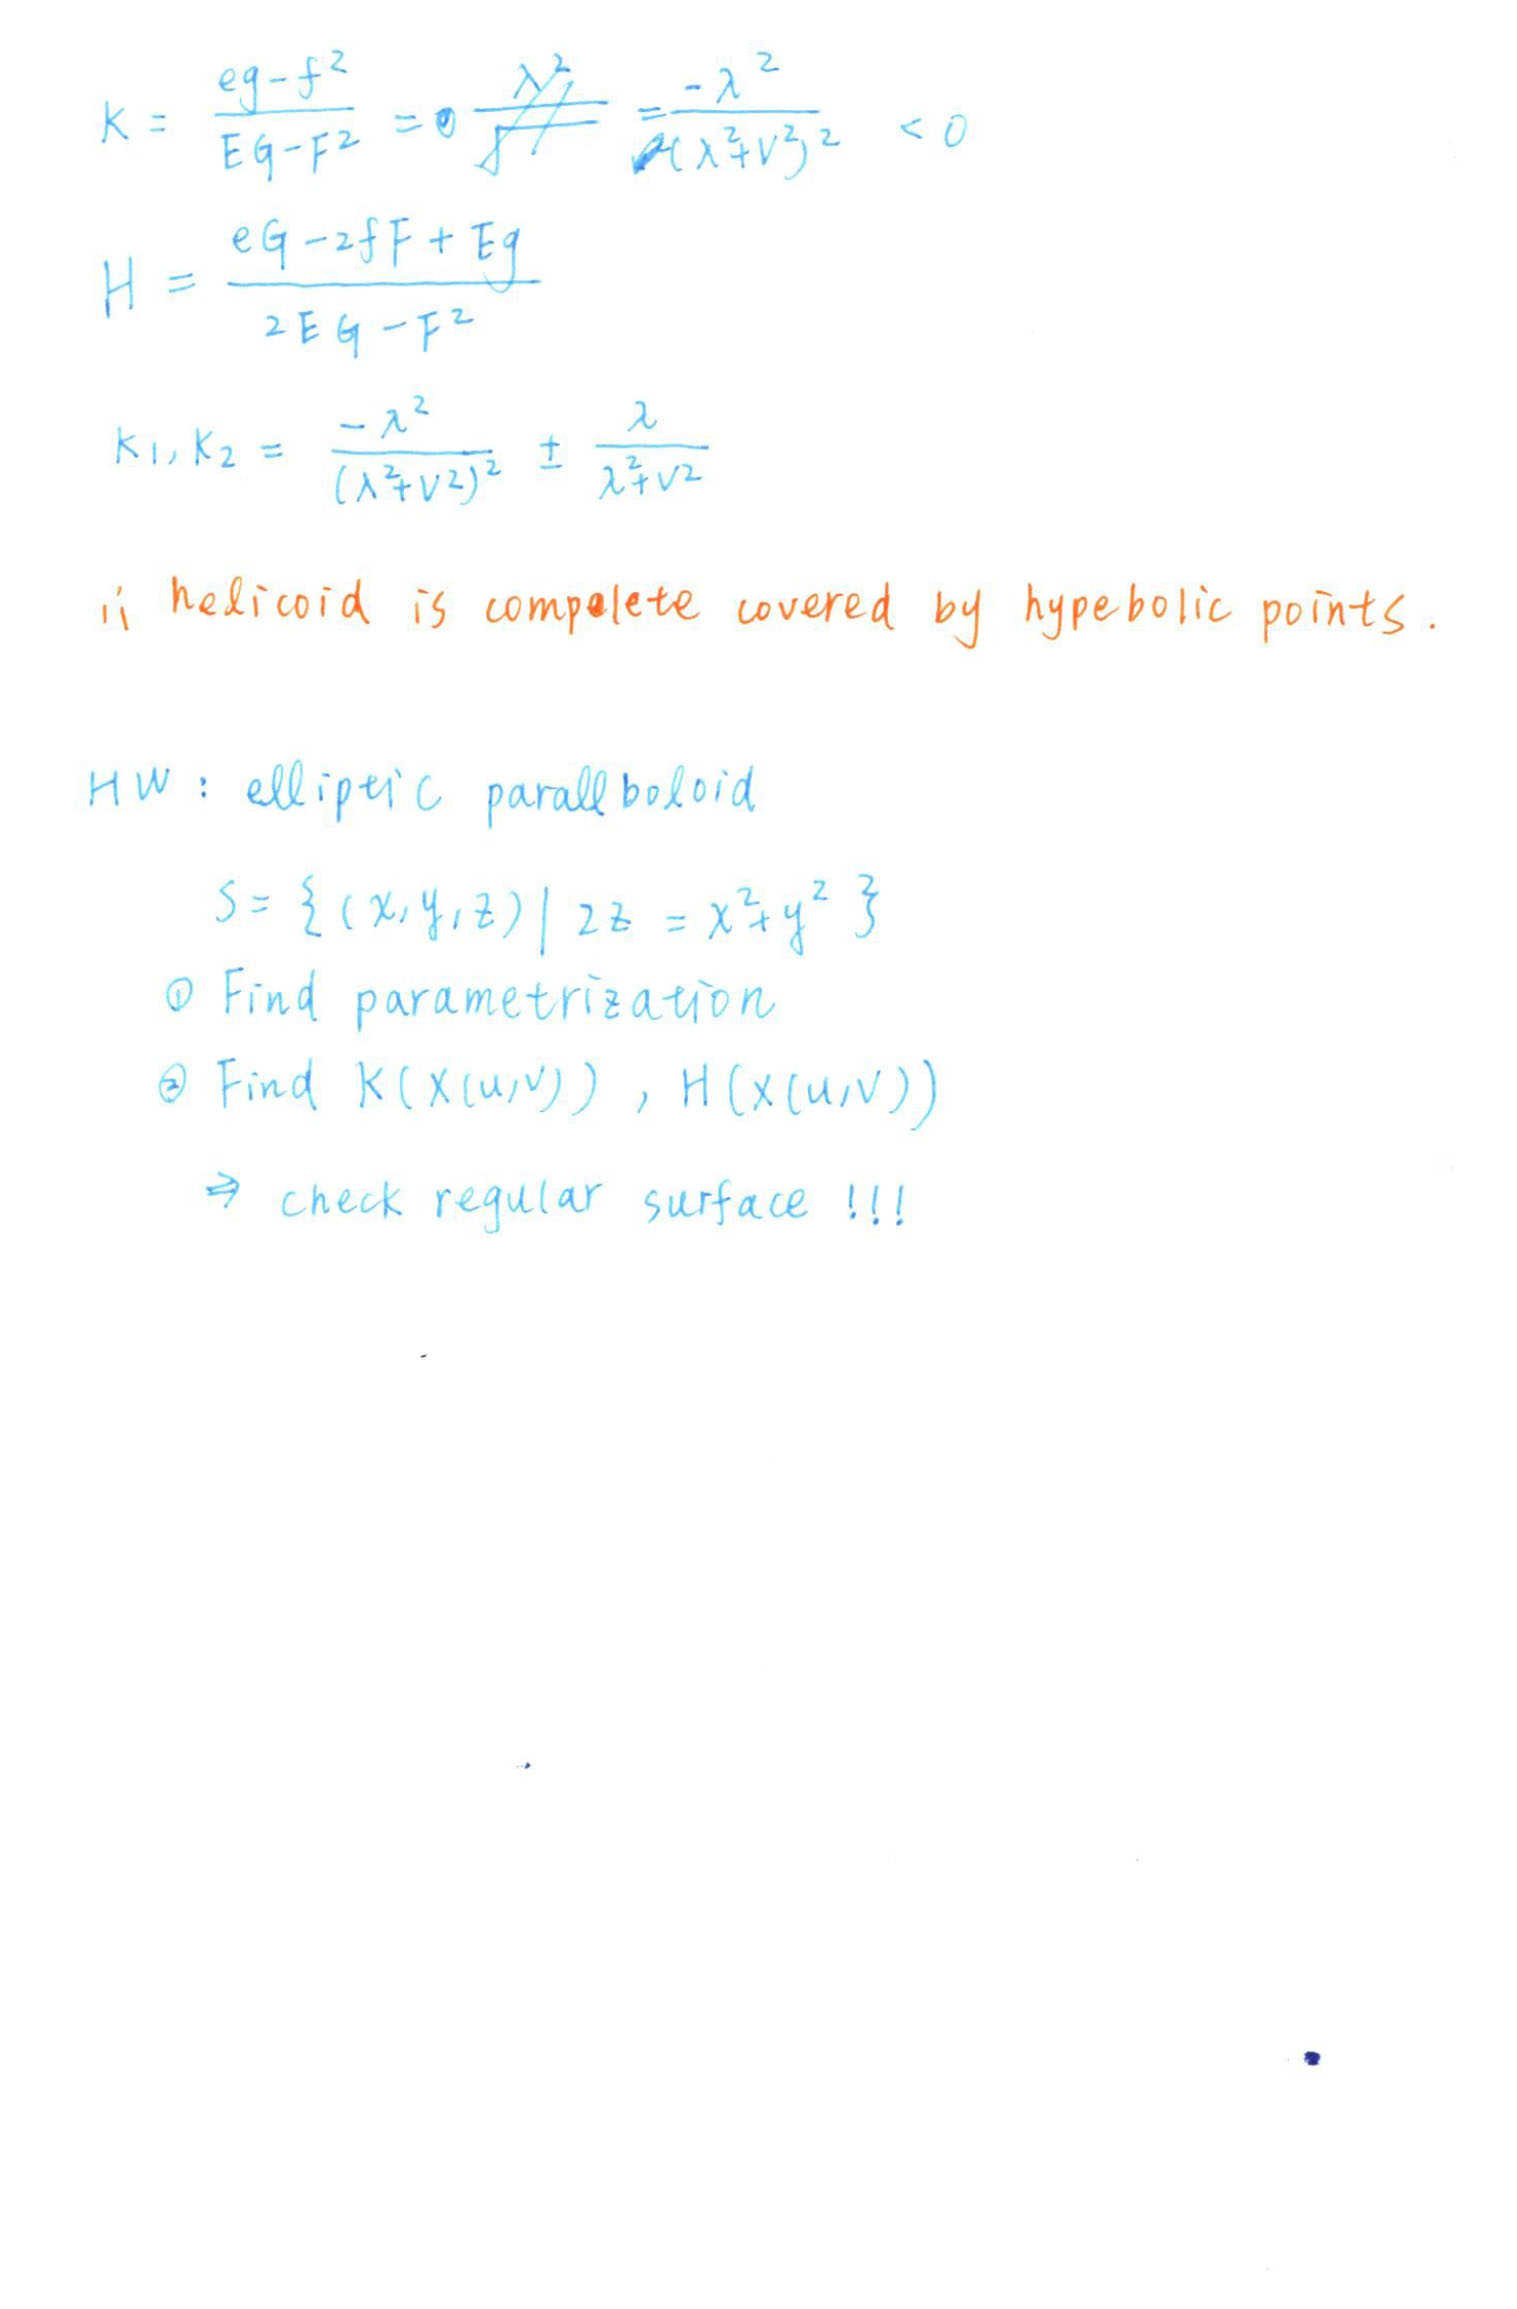 K = eg-f² / EG-F² = -λ² / (λ²+v²)² < 0
H = eG-2fF+Eg / 2EG-F²
K₁, K₂ = -λ² / (λ²+v²)² ± λ / λ²+v²
helicoid is compelete covered by hypebolic points.
HW : elliptic parallboloid
S = {(x,y,z) | 2z = x²+y²}
① Find parametrization
② Find K(X(u,v)), H(X(u,v))
⇒ check regular surface !!!